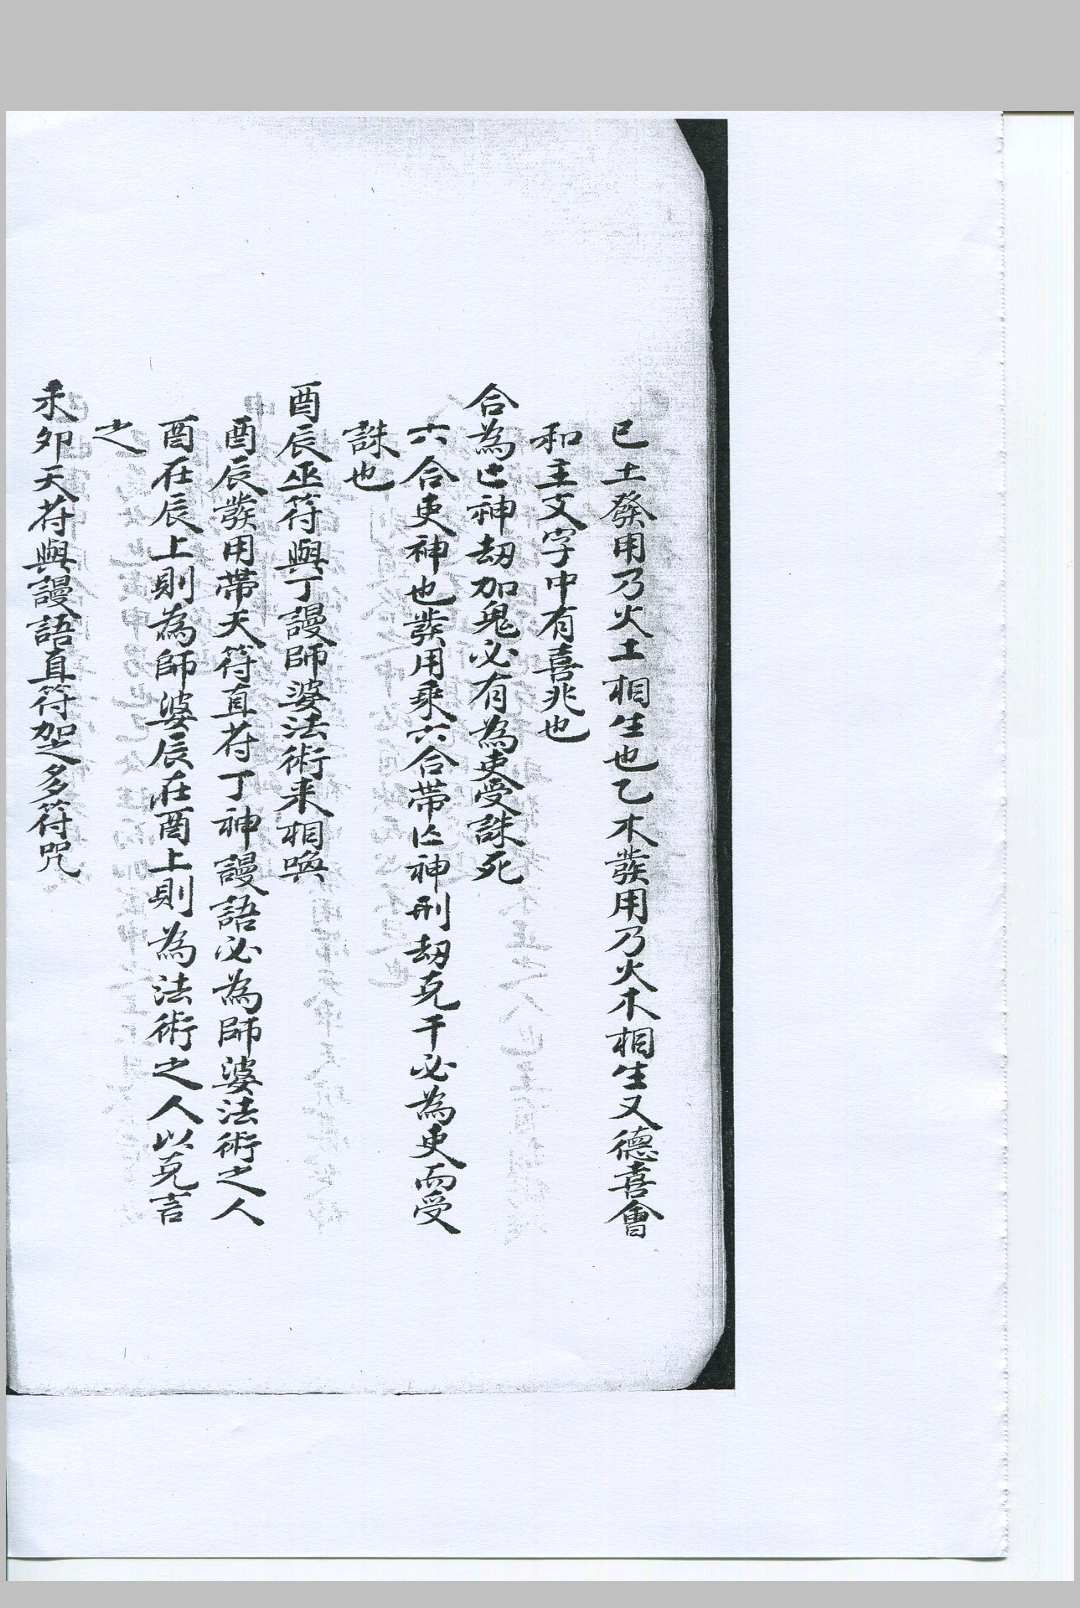 巳土發用乃火土相生也乙木發用乃火木相生又德喜會
和主文字中有喜兆也
合為亡神劫加鬼必有為吏受誅死
六合吏神也發用乘六合帶亡神刑劫克干必為吏而受
誅也
酉辰巫符與丁謾師婆法術来相喚
酉辰發用帶天符直符丁神謾語必為師婆法術之人
酉在辰上則為師婆辰在酉上則為法術之人以克言
之
卯天符與謾語直符加之多符咒